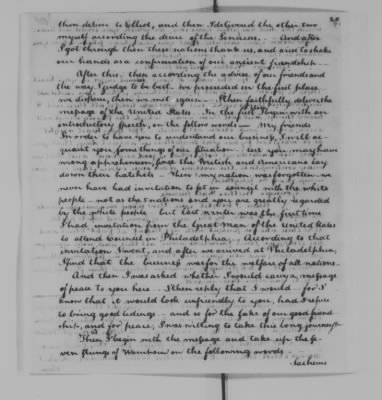 then deliver to Elliot, and then I delivered the other two
myself according the desire of the Senecas. And after
I got through then these nations thank us, and arise to shake
our hands as a confirmation of our ancient friendship—
After this, then according the advise of our friends and
the way I judge to be best. we proceeded in the first place
we disperse, then we met again. I then faithfully deliver the
message of the United States. In the first I begin with an
introductory speech, in the follow. My friends
In order to have you to understand our business, I will ac-
quaint you some things of our situation. lest you may have
wrong apprehension, since the British and Americans lay
down their hatchets. Then my nation was forgotten. we
never have had invitation to set in council with the white
people. not as the 5 nations and you are greatly regarded
by the white people but last winter was the first time
I had invitation from the Great man of the United States
to attend Council in Philadelphia. According to that
invitation I went and after we arrived at Philadelphia,
I find that the business was for the welfare of all nations.
And then I was asked whether I would carry a message
of peace to you here. I then reply that I would. for I
know that it would look unfriendly to you, had I refuse
to bring good tidings and as for the sake of our good friend
ship, and for peace, I was willing to take this long journey.
Then I begin with the message and take up the se-
ven strings of Wampum on the following words
Sachems